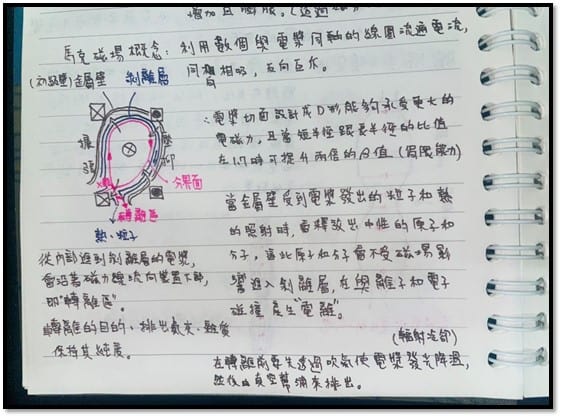 增加且膨脹。(透過
馬克磁場概念:利用數個與電漿同軸的線圈流通電流,
同相相吸,反向互斥。
向
(初級壁)金屬壁 剝離層
擴張
壓抑
分界面
X點
轉離區
熱、粒子
∴電漿切面設計成D形能夠承受更大的
電磁力,且當短半徑跟長半徑的比值
在1.7時可提升兩倍的β值(局限能力)
當金屬壁受到電漿發出的粒子和熱
的照射時,會釋放出中性的原子和
分子,這些原子和分子會不受磁場影
響進入剝離層,在與離子和電子
碰撞產生"電離"。
從內部進到剝離層的電漿,
會沿著磁力線流向裝置下部,
即"轉離區"。
轉離的目的:排出氦灰、雜質
保持其純度。
(輻射冷卻)
在轉離前要先透過吹氣使電漿發光降溫,
然後由真空幫浦來排出。